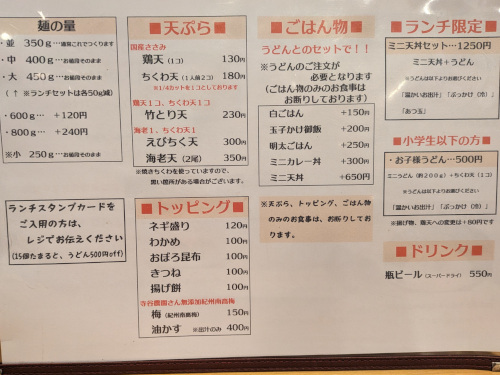 麺の量
・並 350g…通常これでつくります
・中 400g…お値段そのまま
・大 450g…お値段そのまま
(↑※ランチセットは各50g減)
・600g… +120円
・800g… +240円
※小 250g…お値段そのまま
ランチスタンプカードを
ご入用の方は、
レジでお伝えください
(15個たまると、うどん500円off)
■天ぷら■
国産ささみ
鶏天(1コ) 130円
ちくわ天(1人前2コ) 180円
※1/4カットを1コとしております
鶏天1コ、ちくわ天1コ
竹とり天 230円
海老1、ちくわ天1コ
えびちく天 300円
海老天(2尾) 350円
※焼きちくわを使っていますので、
黒い箇所がある場合がございます。
■トッピング■
ネギ盛り 120円
わかめ 100円
おぼろ昆布 100円
きつね 100円
揚げ餅 100円
寺谷農園さん無添加紀州南高梅
梅(紀州南高梅) 150円
油かす ※出汁のみ 400円
■ごはん物■
うどんとのセットで!!
※うどんのご注文が
必要となります
(ごはん物のみのお食事は
お断りしております)
白ごはん +150円
玉子かけ御飯 +200円
明太ごはん +250円
ミニカレー丼 +300円
ミニ天丼 +650円
※天ぷら、トッピング、ごはん物
のみのお食事は、お断りしてお
ります。
■ランチ限定■
ミニ天丼セット…1250円
ミニ天丼+うどん
※うどんは以下よりお選びください
「温かいお出汁」「ぶっかけ(冷)」
「あつ玉」
■小学生以下の方■
・お子様うどん…500円
ミニうどん(約200g)+ちくわ天(1コ)
※うどんは以下よりお選びください
「温かいお出汁」「ぶっかけ(冷)」
※揚げ物、鶏天への変更は+80円です
■ドリンク■
瓶ビール(スーパードライ) 550円